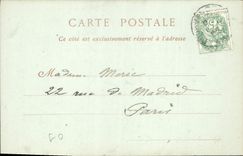 CARTE POSTALE
Ce côté est exclusivement réservé à l'adresse
Madame Morse
22 rue de Madrid
Paris